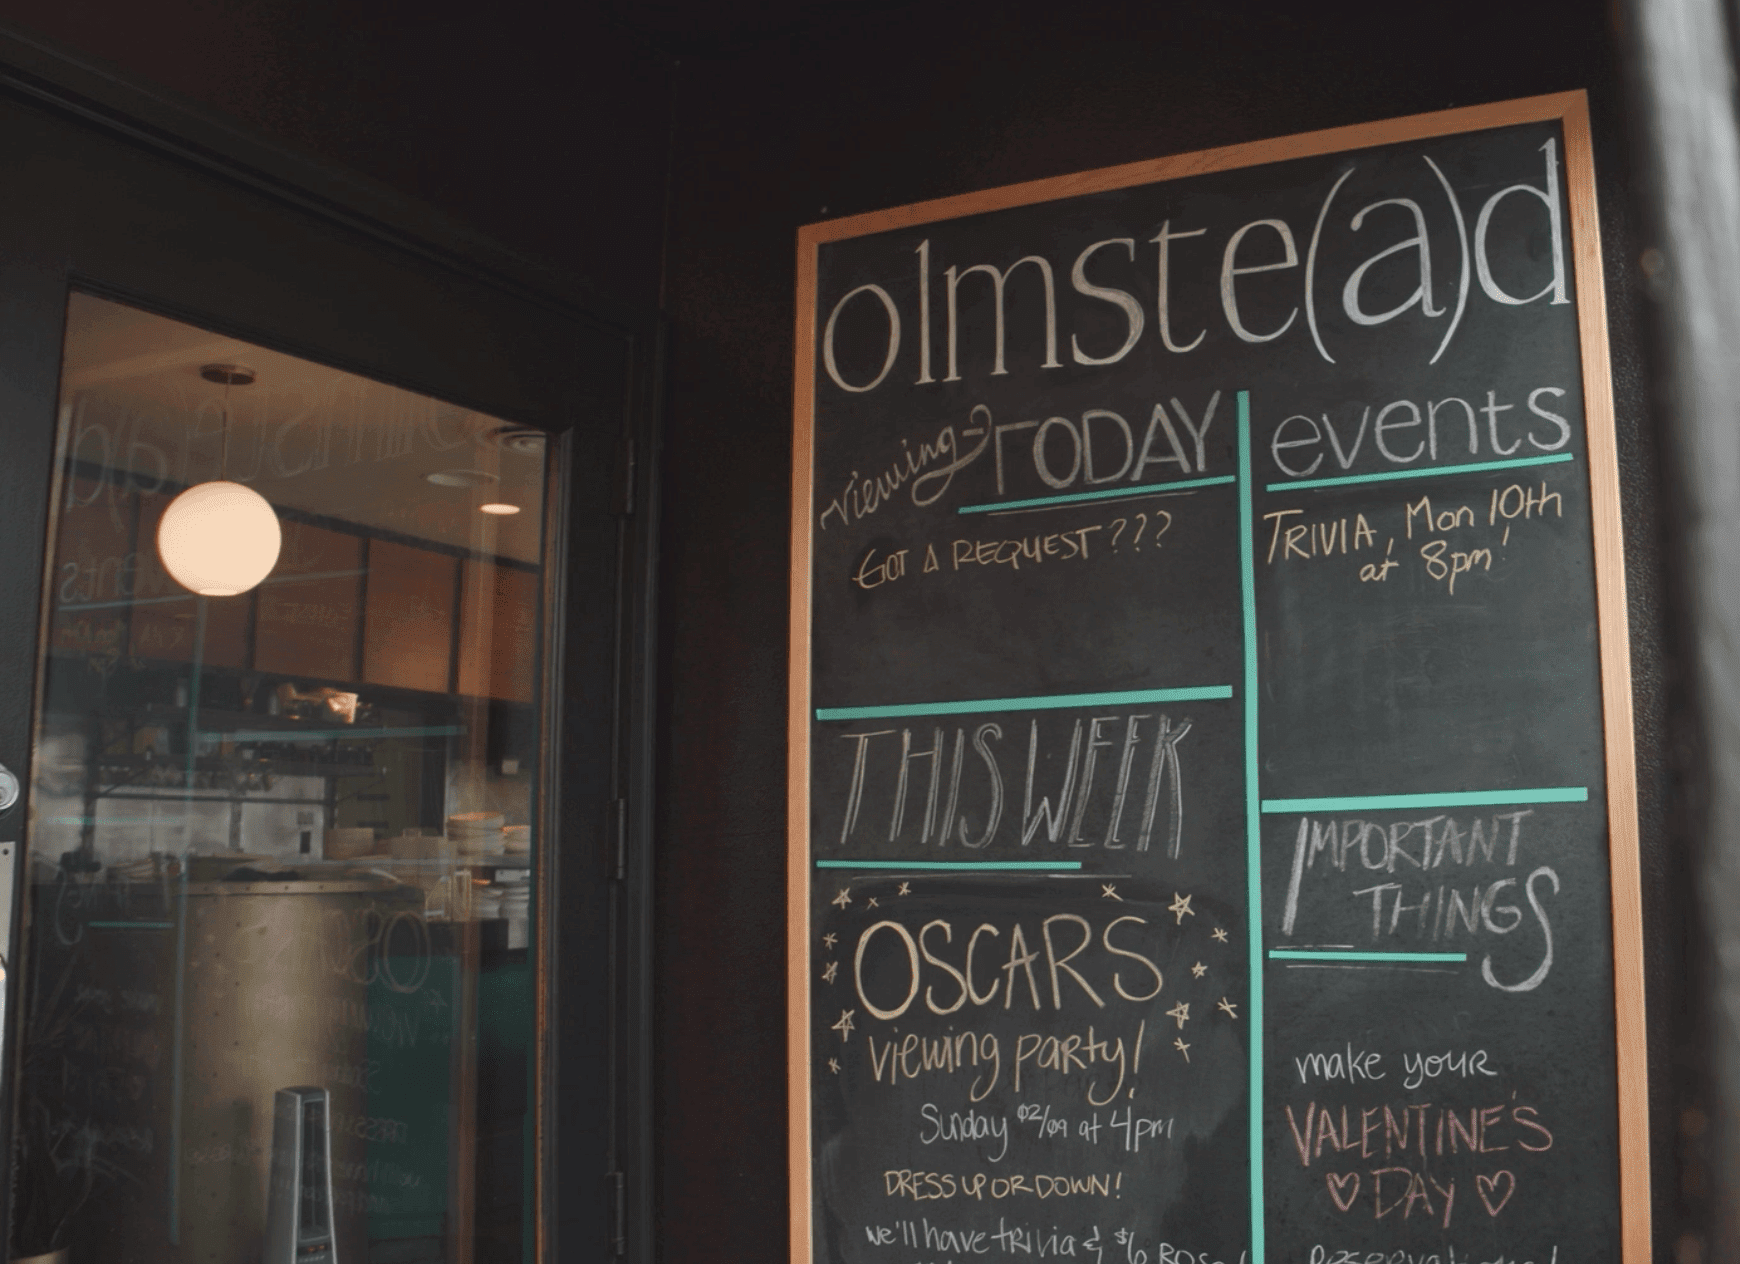 olmste(a)d
viewing TODAY
GOT A REQUEST???
THIS WEEK
OSCARS
viewing party!
Sunday 02/09 at 4pm
DRESS UP OR DOWN!
we'll have trivia & $6 ROSé!
events
TRIVIA, Mon 10th
at 8pm!
IMPORTANT
THINGS
make your
VALENTINE'S
♡ DAY ♡
Reservations!